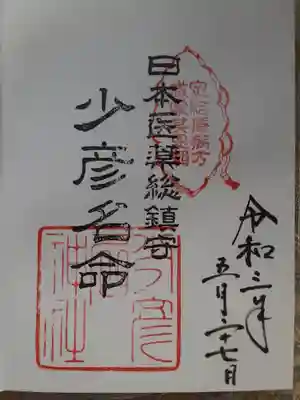 令和三年
五月二十七日
日本医薬総鎮守
少彦名命
少彦名神社